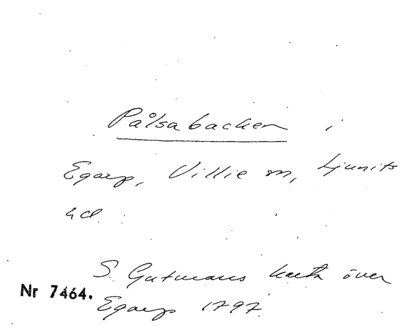 Pålsabacken i
Egarp, Villie sn, Ljunits
hd.
S. Gutmans karta över
Nr 7464.
Egarp 1797.